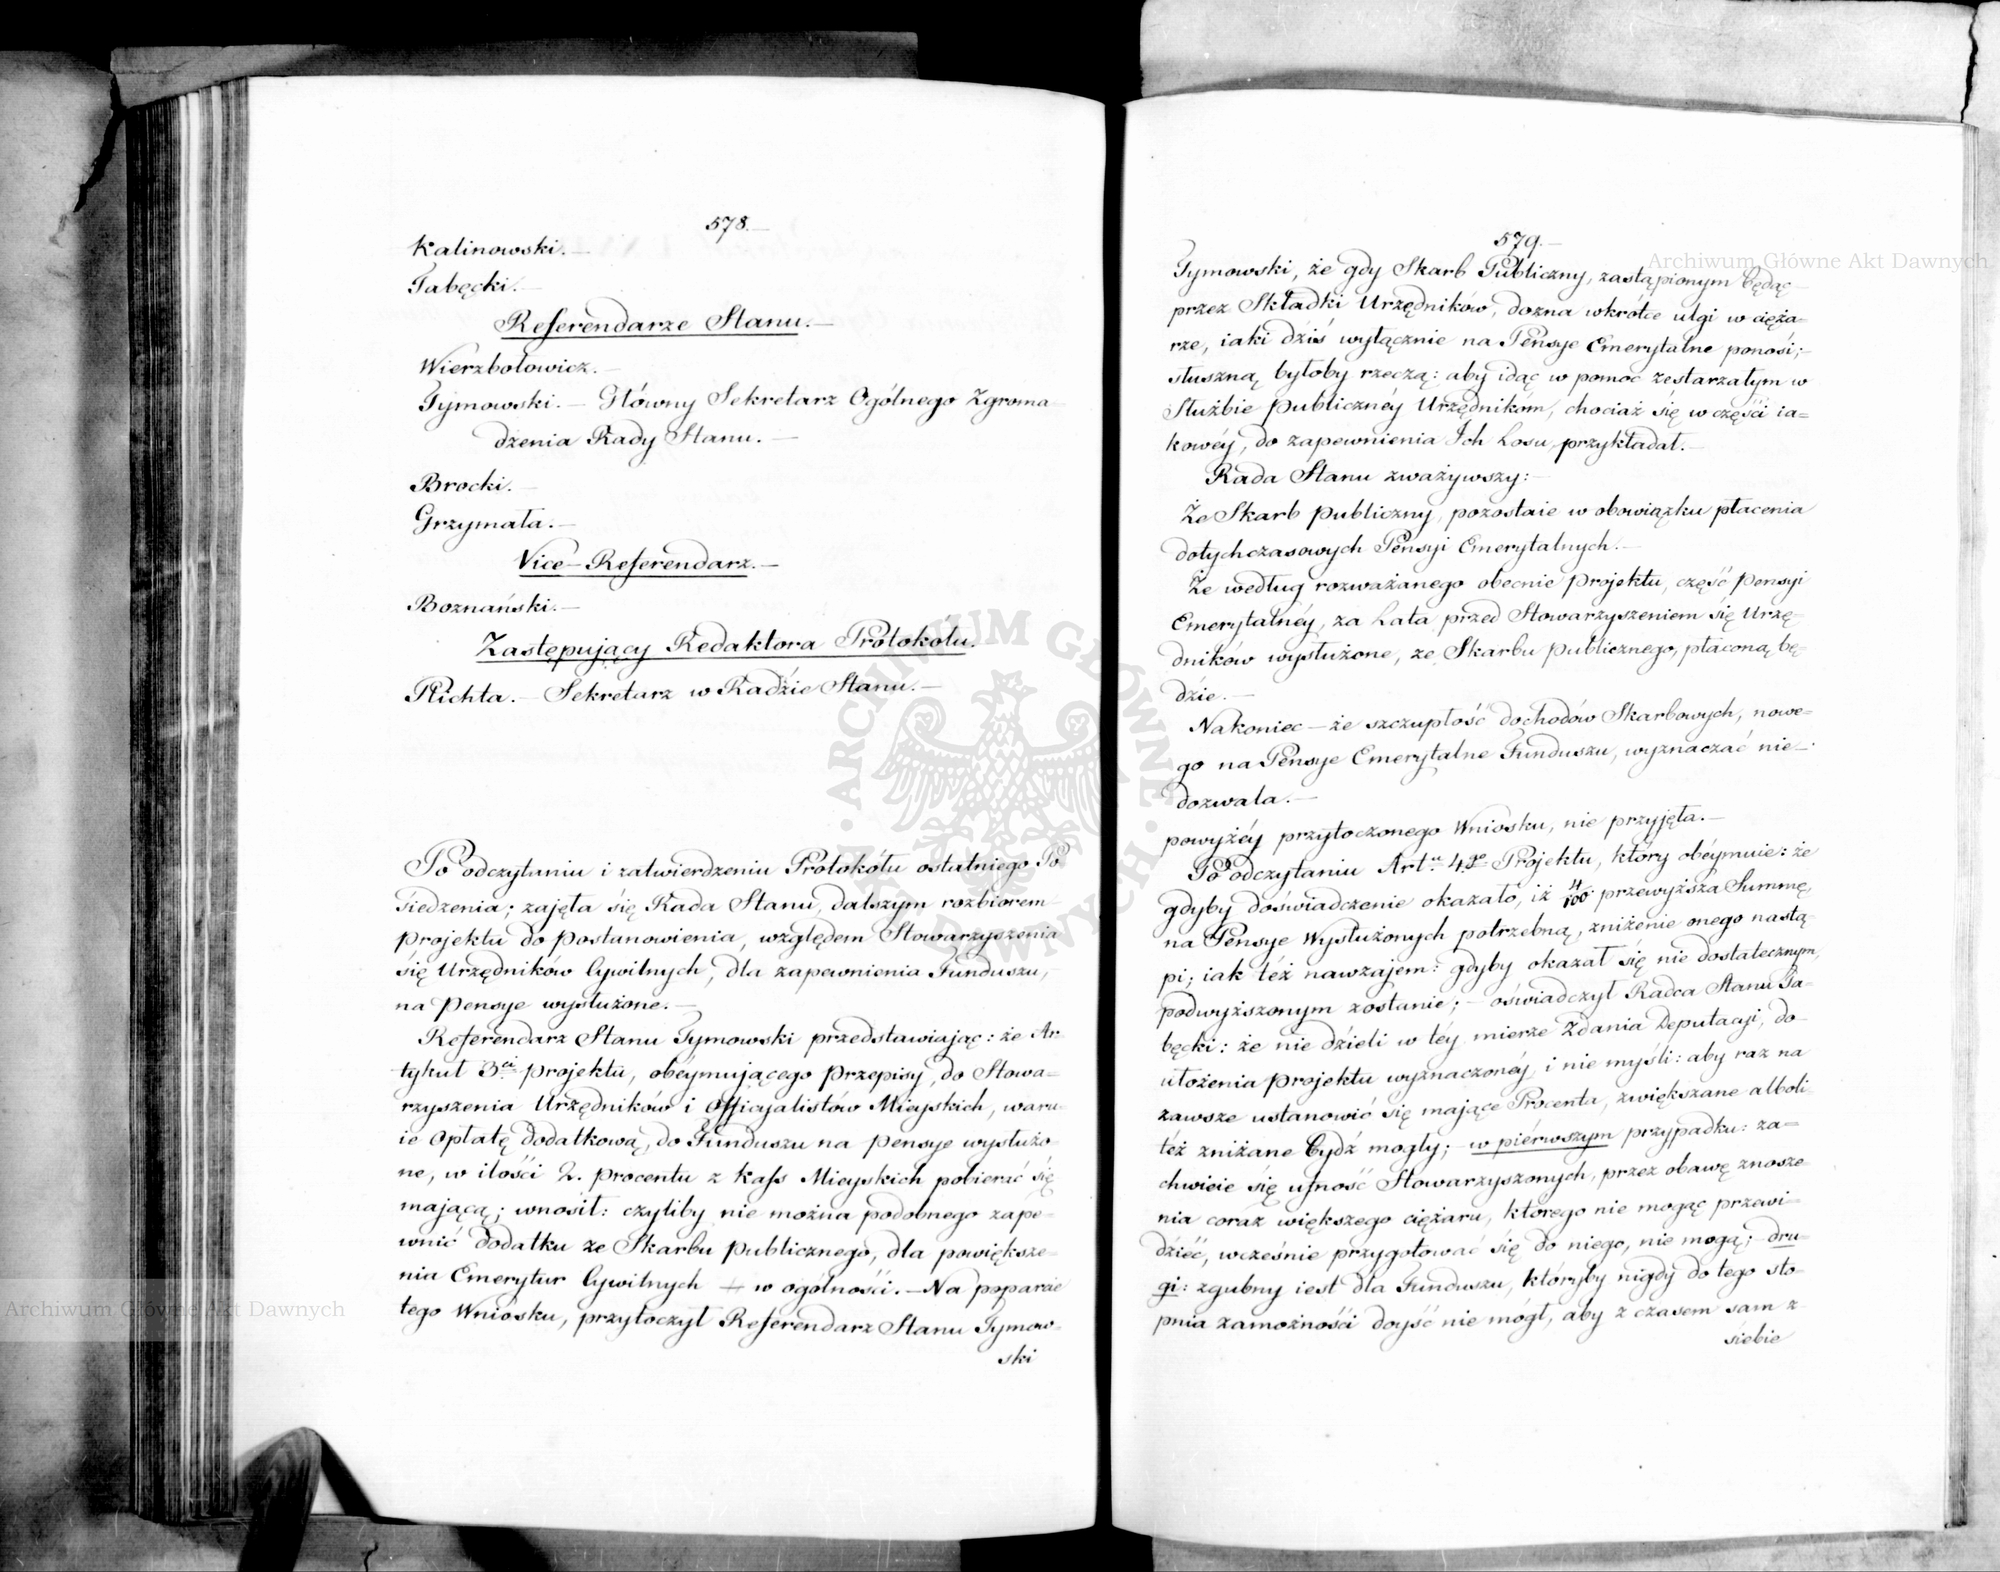 578.—
Kalinowski.—
Tabęcki.—
Referendarze Stanu.—
Wierzbołowicz.—
Tymowski.— Główny Sekretarz Ogólnego Zgroma-
dzenia Rady Stanu.—
Brocki.—
Grzymała.—
Vice-Referendarz.—
Boznański.—
Zastępujący Redaktora Protokołu.
Plichta.— Sekretarz w Radzie Stanu.—
Po odczytaniu i zatwierdzeniu Protokółu ostatniego Po
siedzenia; zajęła się Rada Stanu, dalszym rozbiorem
projektu do postanowienia, względem Stowarzyszenia
się Urzędników Cywilnych, dla zapewnienia Funduszu,
na Pensye wysłużone.—
Referendarz Stanu Tymowski przedstawiając: że Ar-
tykuł 3ci projektu, obéymującego przepisy, do Stowa-
rzyszenia Urzędników i Officyalistów Mieyskich, waru-
ie Opłatę dodatkową, do Funduszu na pensye wysłużo-
ne, w ilości 2. procentu z Kass Mieyskich pobierać się
mającą; wnosił: czyliby nie można podobnego zape-
wnić dodatku ze Skarbu publicznego, dla powiększe-
nia Emerytur Cywilnych w ogólności.— Na poparcie
tego Wniosku, przytoczył Referendarz Stanu Tymow-
ski
579.—
Tymowski, że gdy Skarb Publiczny, zastąpionym będąc
przez Składki Urzędników, dozna wkrótce ulgi w cięża-
rze, iaki dziś wyłącznie na Pensye Emerytalne ponosi;—
słuszną byłoby rzeczą: aby idąc w pomoc zestarzałym w
Służbie publicznéy Urzędnikóm, chociaż się w części ia-
kowéy, do zapewnienia Ich Losu przykładał.—
Rada Stanu zważywszy:—
Że Skarb publiczny, pozostaie w obowiązku płacenia
dotychczasowych Pensyi Emerytalnych.—
Że według rozważanego obecnie projektu, część pensyi
Emerytalnéy, za Lata przed Stowarzyszeniem się Urzę-
dników wysłużone, ze Skarbu publicznego, płaconą bę-
dzie.—
Nakoniec— że szczupłość dochodów Skarbowych, nowe-
go na Pensye Emerytalne Funduszu, wyznaczać nie-
dozwala.—
powyżéy przytoczonego Wniosku, nie przyjęła.—
Po odczytaniu Art.u 4.go Projektu, który obéymuie: że
gdyby doświadczenie okazało, iż 4/100 przewyższa Summę,
na Pensye Wysłużonych potrzebną, zniżenie onego nastą-
pi; iak też nawzajem: gdyby okazał się nie dostatecznym,
podwyższonym zostanie;— oświadczył Radca Stanu Ta-
bęcki: że nie dzieli w téy mierze Zdania Deputacyi, do
ułożenia projektu wyznaczonéy, i nie myśli: aby raz na
zawsze ustanowić się mające Procenta, zwiększane alboli-
téż zniżane bydź mogły;— w piérwszym przypadku: za-
chwieie się ufność Stowarzyszonych, przez obawę znosze-
nia coraz większego ciężaru, którego nie mogąc przewi-
dzieć, wcześnie przygotować się do niego, nie mogą;— dru-
gi: zgubny iest dla Funduszu, któryby nigdy do tego sto-
pnia zamożności doyść nie mógł, aby z czasem sam z
siebie
Archiwum Główne Akt Dawnych
Archiwum Główne Akt Dawnych
ARCHIWUM GŁÓWNE AKT DAWNYCH